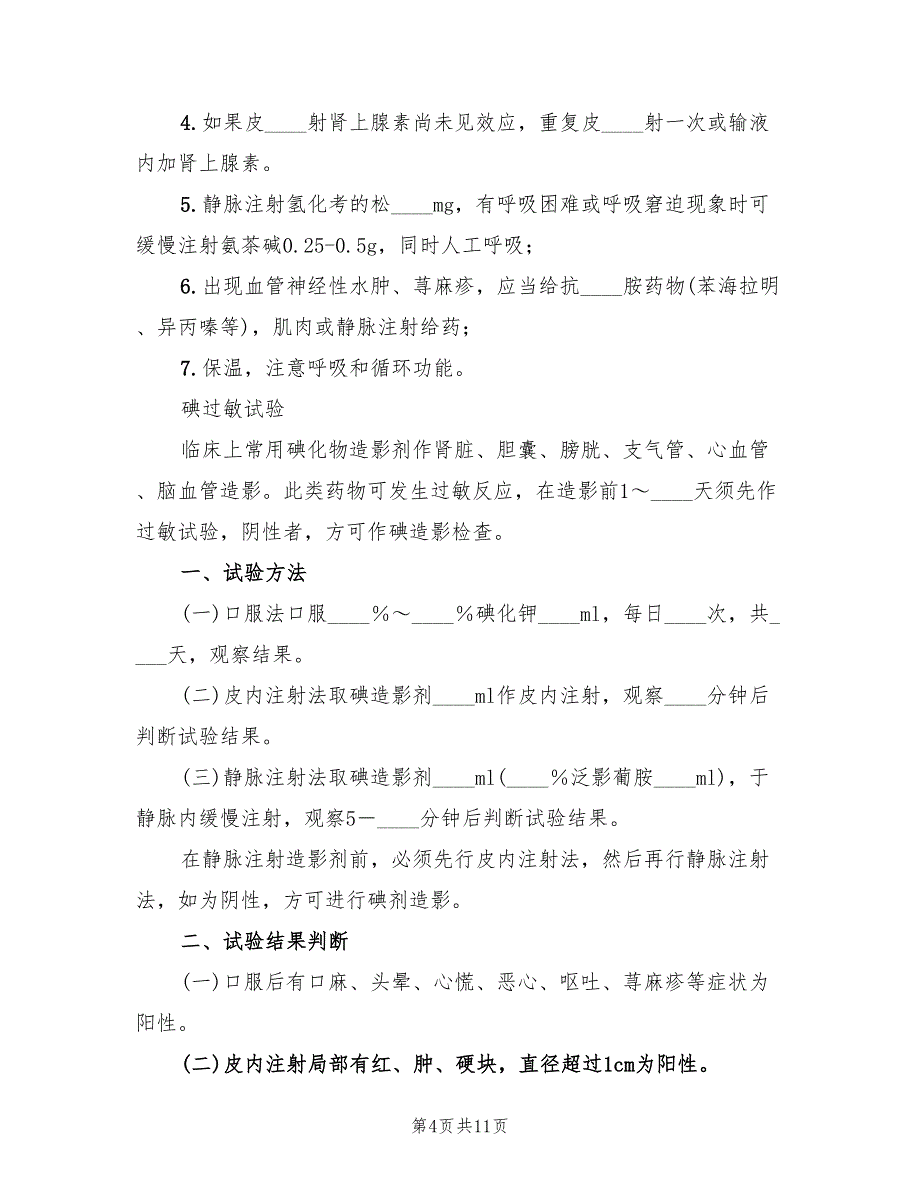 4.如果皮____射肾上腺素尚未见效应，重复皮____射一次或输液
内加肾上腺素。
5.静脉注射氢化考的松____mg，有呼吸困难或呼吸窘迫现象时可
缓慢注射氨茶碱0.25-0.5g，同时人工呼吸；
6.出现血管神经性水肿、荨麻疹，应当给抗____胺药物(苯海拉明
、异丙嗪等)，肌肉或静脉注射给药；
7.保温，注意呼吸和循环功能。
碘过敏试验
临床上常用碘化物造影剂作肾脏、胆囊、膀胱、支气管、心血管
、脑血管造影。此类药物可发生过敏反应，在造影前1～____天须先作
过敏试验，阴性者，方可作碘造影检查。
一、试验方法
(一)口服法口服____%～____%碘化钾____ml，每日____次，共_
___天，观察结果。
(二)皮内注射法取碘造影剂____ml作皮内注射，观察____分钟后
判断试验结果。
(三)静脉注射法取碘造影剂____ml(____%泛影葡胺____ml)，于
静脉内缓慢注射，观察5－____分钟后判断试验结果。
在静脉注射造影剂前，必须先行皮内注射法，然后再行静脉注射
法，如为阴性，方可进行碘剂造影。
二、试验结果判断
(一)口服后有口麻、头晕、心慌、恶心、呕吐、荨麻疹等症状为
阳性。
(二)皮内注射局部有红、肿、硬块，直径超过1cm为阳性。
第4页共11页